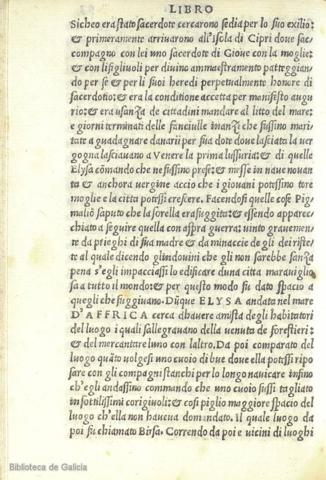 LIBRO
Sicheo era stato sacerdote cercarono sedia per lo suo exilio:
& primeramente arriuarono all'isola di Cipri doue s'ac
compagno con lei uno sacerdote di Gioue con la moglie:
& con li figliuoli per diuino ammaestramento patteggian
do per se & per li suoi heredi perpetualmente honore di
sacerdotio: & era la conditione accetta per manifesto augu
rio: & era usanza de cittadini mandare al litto del mare:
e giorni terminati delle fanciulle inanzi che fussino mari
tate a guadagnare danari per sua dote doue lasciata la uer
gogna lasciauano a Venere la prima lussuria: & di quelle
Elysa cōmando che ne fussino prese: & messe in naue nouan
ta & anchora uergine accio che i giouani potessino torre
moglie e la citta potessi crescere. Facendosi quelle cose Pig
maliō saputo che la sorella era fuggita: & essendo apparec
chiato a seguire quella con aspra guerra: uinto grauemen
te da prieghi di sua madre & da minaccie de gli dei riste
te al quale dicendo gl'indouini che gli non sarebbe sanza
pena s'egli impacciassi lo edificare duna citta marauiglio
sa a tutto il mondo: & per questo modo su dato spacio a
quegli che fuggiuano. Dūque ELYSA andata nel mare
D'AFFRICA cerca dhauere amista degli habitatori
del luogo i quali sallegrauano della uenuta de forestieri:
& del mercantare luno con laltro. Da poi comparato del
luogo quāto uolgesi uno cuoio di bue doue ella potessi ripo
sare con gli compagni stanchi per lo longo nauicare infino
ch'egli andassino commando che uno cuoio fussi tagliato
in sottilissimi corigiuoli: & cosi piglio maggiore spacio del
luogo ch'ella non haueua domandato. Il quale luogo da
poi fu chiamato Birsa. Correndo da poi e uicini di luoghi
Biblioteca de Galicia